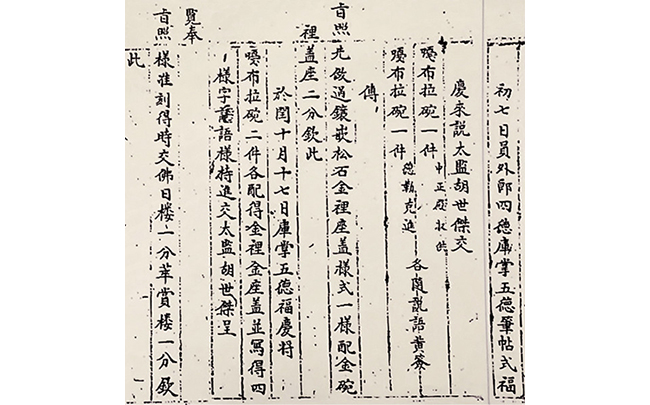 初七日員外郎四德庫掌五德筆帖式福
慶來說太監胡世傑交
嘎布拉碗一件 中正殿收供
嘎布拉碗一件 德勒克進 各隨說語黃簽
傳
旨照先做過鑲嵌松石金裡座蓋樣式一樣配金碗
裡蓋座二分欽此
於閏十月十七日庫掌五德福慶將
嘎布拉碗二件各配得金裡金座蓋並寫得四
樣字語樣持進交太監胡世傑呈
覽奉
旨照樣准刻得時交佛日樓一分萃賞樓一分欽
此